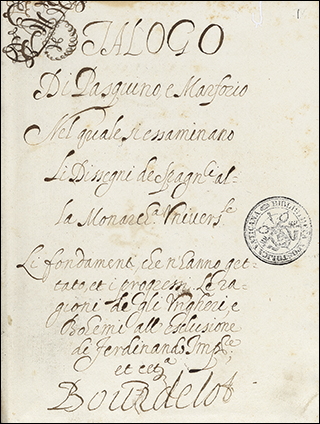 1
DIALOGO
Di Pasquino e Marforio
Nel quale si essaminano
Li Dissegni de Spagnli al-
la Monarcha Universle
Li fondamenti, che n'hanno get-
tato, et i progressi, Le ra-
gioni de gli Ungheri, e
Bohemi all'esclusione
di Ferdinando Impre
et cetra
Bourdelot
BIBLIOTHECA APOSTOLICA VATICANA